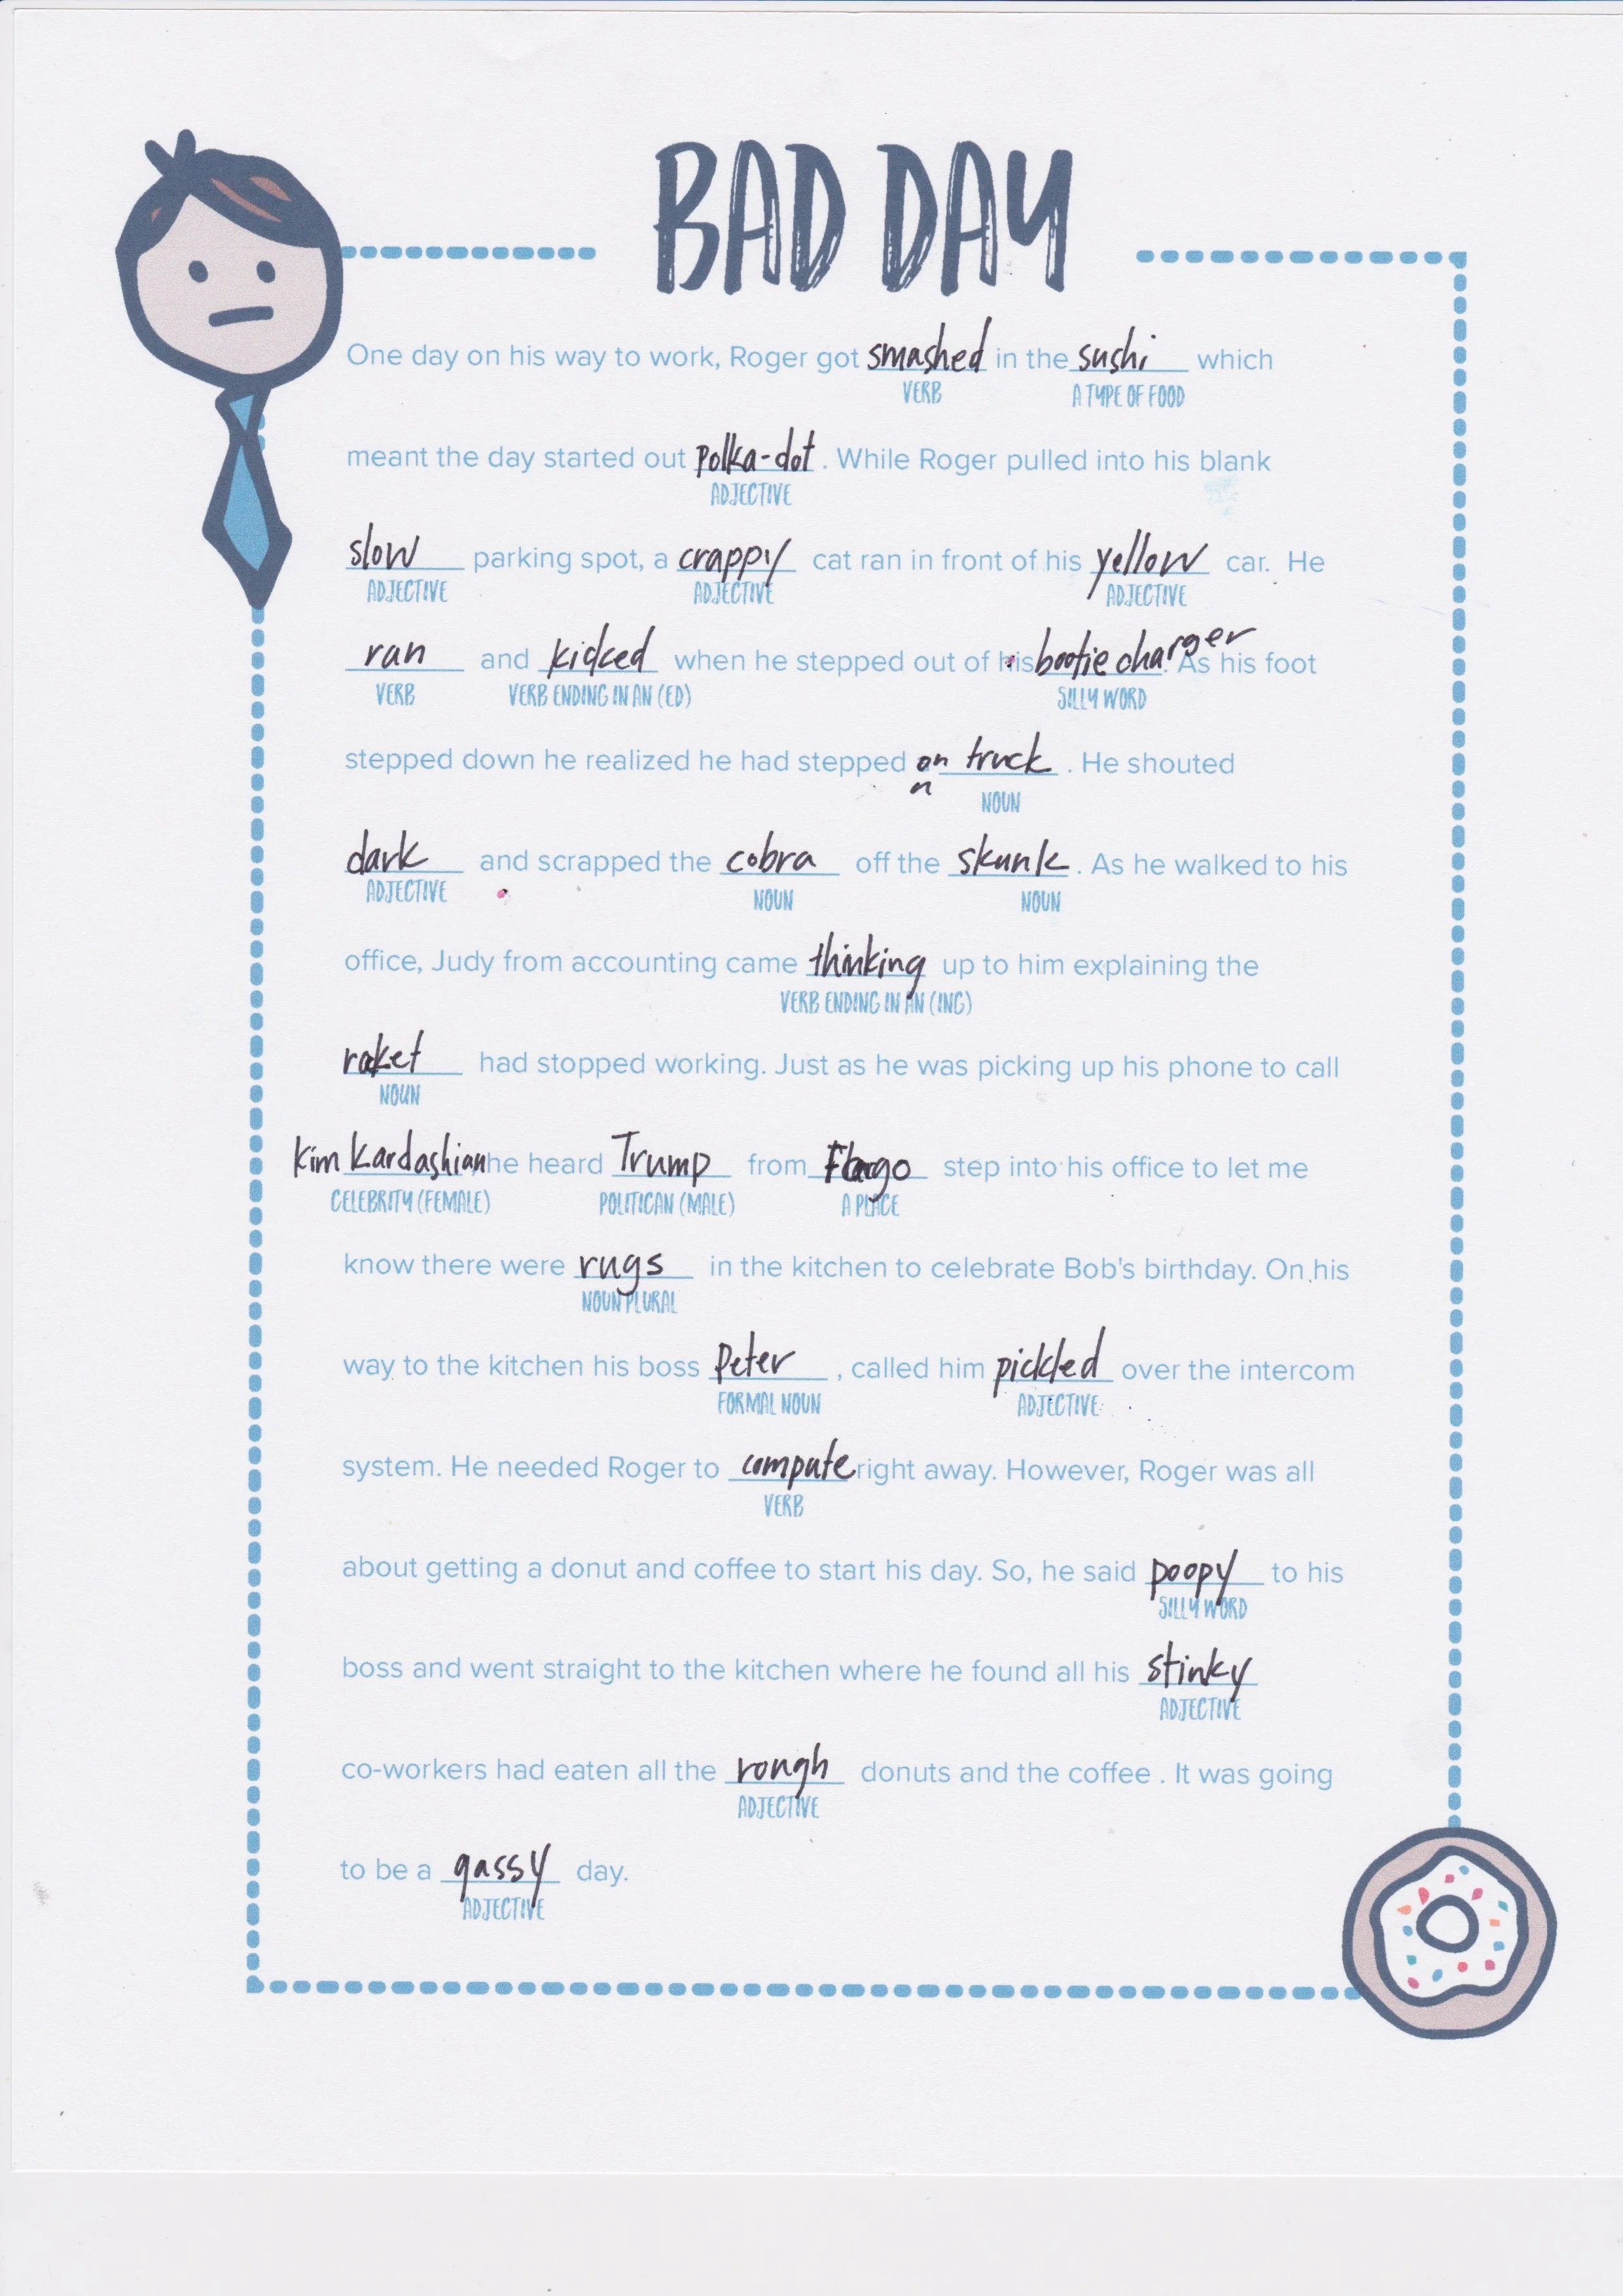 BAD DAY
One day on his way to work, Roger got smashed in the sushi which
VERB A TYPE OF FOOD
meant the day started out polka-dot. While Roger pulled into his blank
ADJECTIVE
slow parking spot, a crappy cat ran in front of his yellow car. He
ADJECTIVE ADJECTIVE ADJECTIVE
ran and kicked when he stepped out of his bootie charger. As his foot
VERB VERB ENDING IN AN (ED) SILLY WORD
stepped down he realized he had stepped on truck. He shouted
a NOUN
dark and scrapped the cobra off the skunk. As he walked to his
ADJECTIVE NOUN NOUN
office, Judy from accounting came thinking up to him explaining the
VERB ENDING IN AN (ING)
raket had stopped working. Just as he was picking up his phone to call
NOUN
Kim Kardashian he heard Trump from Fargo step into his office to let me
CELEBRITY (FEMALE) POLITICAN (MALE) A PLACE
know there were rugs in the kitchen to celebrate Bob's birthday. On his
NOUN PLURAL
way to the kitchen his boss Peter, called him pickled over the intercom
FORMAL NOUN ADJECTIVE
system. He needed Roger to compute right away. However, Roger was all
VERB
about getting a donut and coffee to start his day. So, he said poopy to his
SILLY WORD
boss and went straight to the kitchen where he found all his stinky
ADJECTIVE
co-workers had eaten all the rough donuts and the coffee . It was going
ADJECTIVE
to be a gassy day.
ADJECTIVE